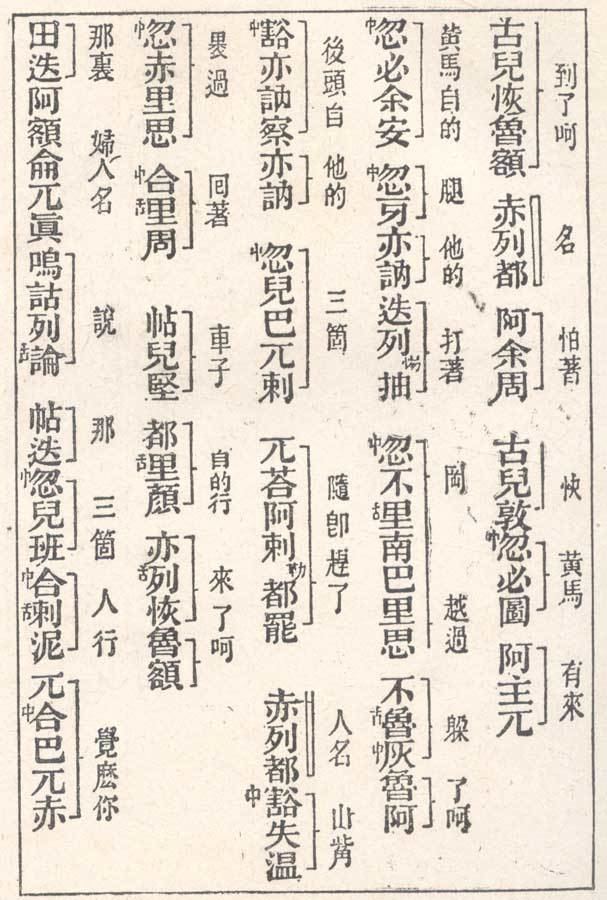 到了呵 名 怕著 快 黃馬 有來
古兒恢魯額 赤列都 阿余周 古兒敦中忽必圖 阿主兀
黃馬自的 腿 他的 打著 岡 越過 躱 了呵
中忽必余安 中忽牙亦訥 迭列惕抽 中忽不舌里南巴里思 不舌魯中灰魯阿
後頭自 他的 三箇 隨卽趕了 人名 山觜
中豁亦訥察亦訥 中忽兒巴兀剌 兀荅阿剌勒都罷 赤列都 中豁失溫
過 囘著 車子 自的行 來了呵
中忽赤里思 中合舌里周 帖兒堅 都舌里顏 亦舌列恢魯額
那裏 婦人名 說 那 三箇 人行 覺麽你
田迭阿額侖兀眞嗚詁列舌論 帖迭中忽兒班中合舌剌泥 兀中合巴兀赤